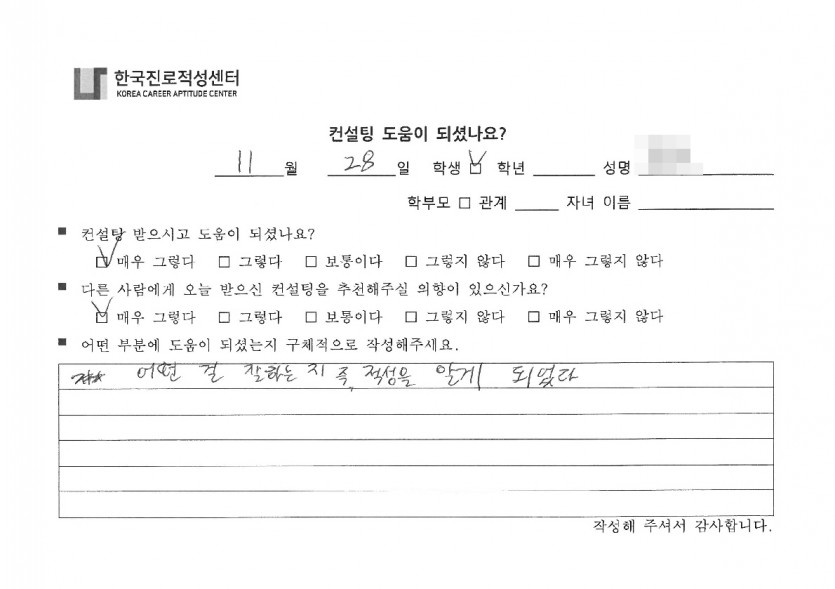 한국진로적성센터
KOREA CAREER APTITUDE CENTER
컨설팅 도움이 되셨나요?
11 월 28 일 학생 ☑ 학년 성명
학부모 □ 관계 자녀 이름
■ 컨설팅 받으시고 도움이 되셨나요?
☑ 매우 그렇다 □ 그렇다 □ 보통이다 □ 그렇지 않다 □ 매우 그렇지 않다
■ 다른 사람에게 오늘 받으신 컨설팅을 추천해주실 의향이 있으신가요?
☑ 매우 그렇다 □ 그렇다 □ 보통이다 □ 그렇지 않다 □ 매우 그렇지 않다
■ 어떤 부분에 도움이 되셨는지 구체적으로 작성해주세요.
어떤 걸 잘하는지 즉, 적성을 알게 되었다
작성해 주셔서 감사합니다.